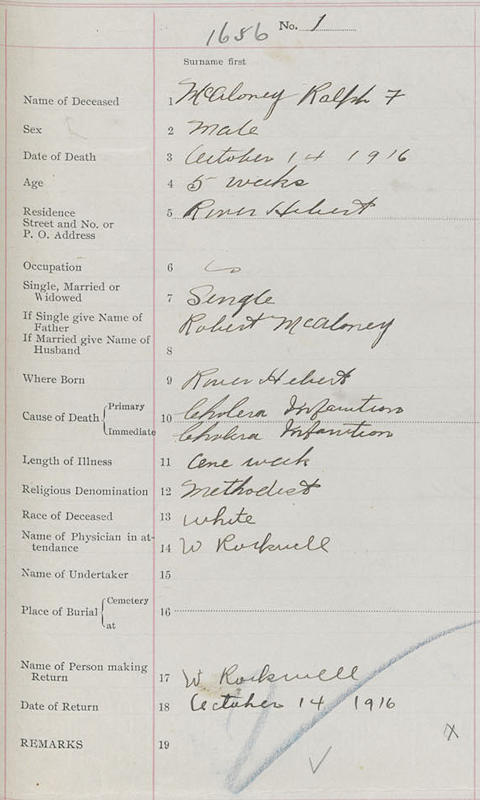 1656 No. 1
Surname first
Name of Deceased 1 McAloney Ralph F
Sex 2 Male
Date of Death 3 October 14 1916
Age 4 5 weeks
Residence 5 River Hebert
Street and No. or
P. O. Address
Occupation 6
Single, Married or
Widowed 7 Single
If Single give Name of
Father Robert McAloney
If Married give Name of
Husband 8
Where Born 9 River Hebert
Cause of Death Primary 10 Cholera Infantum
Immediate Cholera Infantum
Length of Illness 11 One week
Religious Denomination 12 Methodist
Race of Deceased 13 white
Name of Physician in at-
tendance 14 W Rockwell
Name of Undertaker 15
Place of Burial Cemetery 16
at
Name of Person making
Return 17 W Rockwell
Date of Return 18 October 14 1916
REMARKS 19